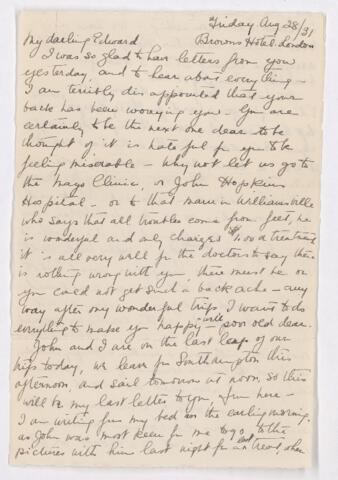 Friday Aug 28/31
My darling Edward Browns Hotel. London
I was so glad to have letters from you
yesterday, and to hear about everything -
I am terribly disappointed that your
back has been worrying you. You are
certainly to be the next one dear to be
thought of it is hateful for you to be
feeling miserable - Why not let us go to
the Mayo Clinic, or John Hopkins
Hospital - or to that man in Williamsville
who says that all troubles come from feet, he
is wonderful and only charges $1.00 a treatment
it is all very well for the doctors to say there
is nothing wrong with you, there must be or
you could not get such a back ache - any
way after my wonderful trip I want to do
everything to make you happy - poor old dear.
John and I are on the last leap of our
trip today, we leave for Southampton this
afternoon and sail tomorrow at noon, so this
will be my last letter to you, from here -
I am writing from my bed in the early morning.
as John was most keen for me to go to the
pictures with him last night for a treat, when